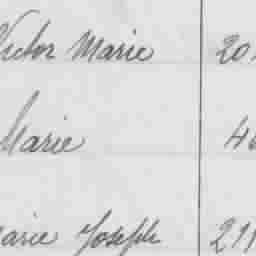 Victor Marie 20
Marie 4
Marie Joseph 211